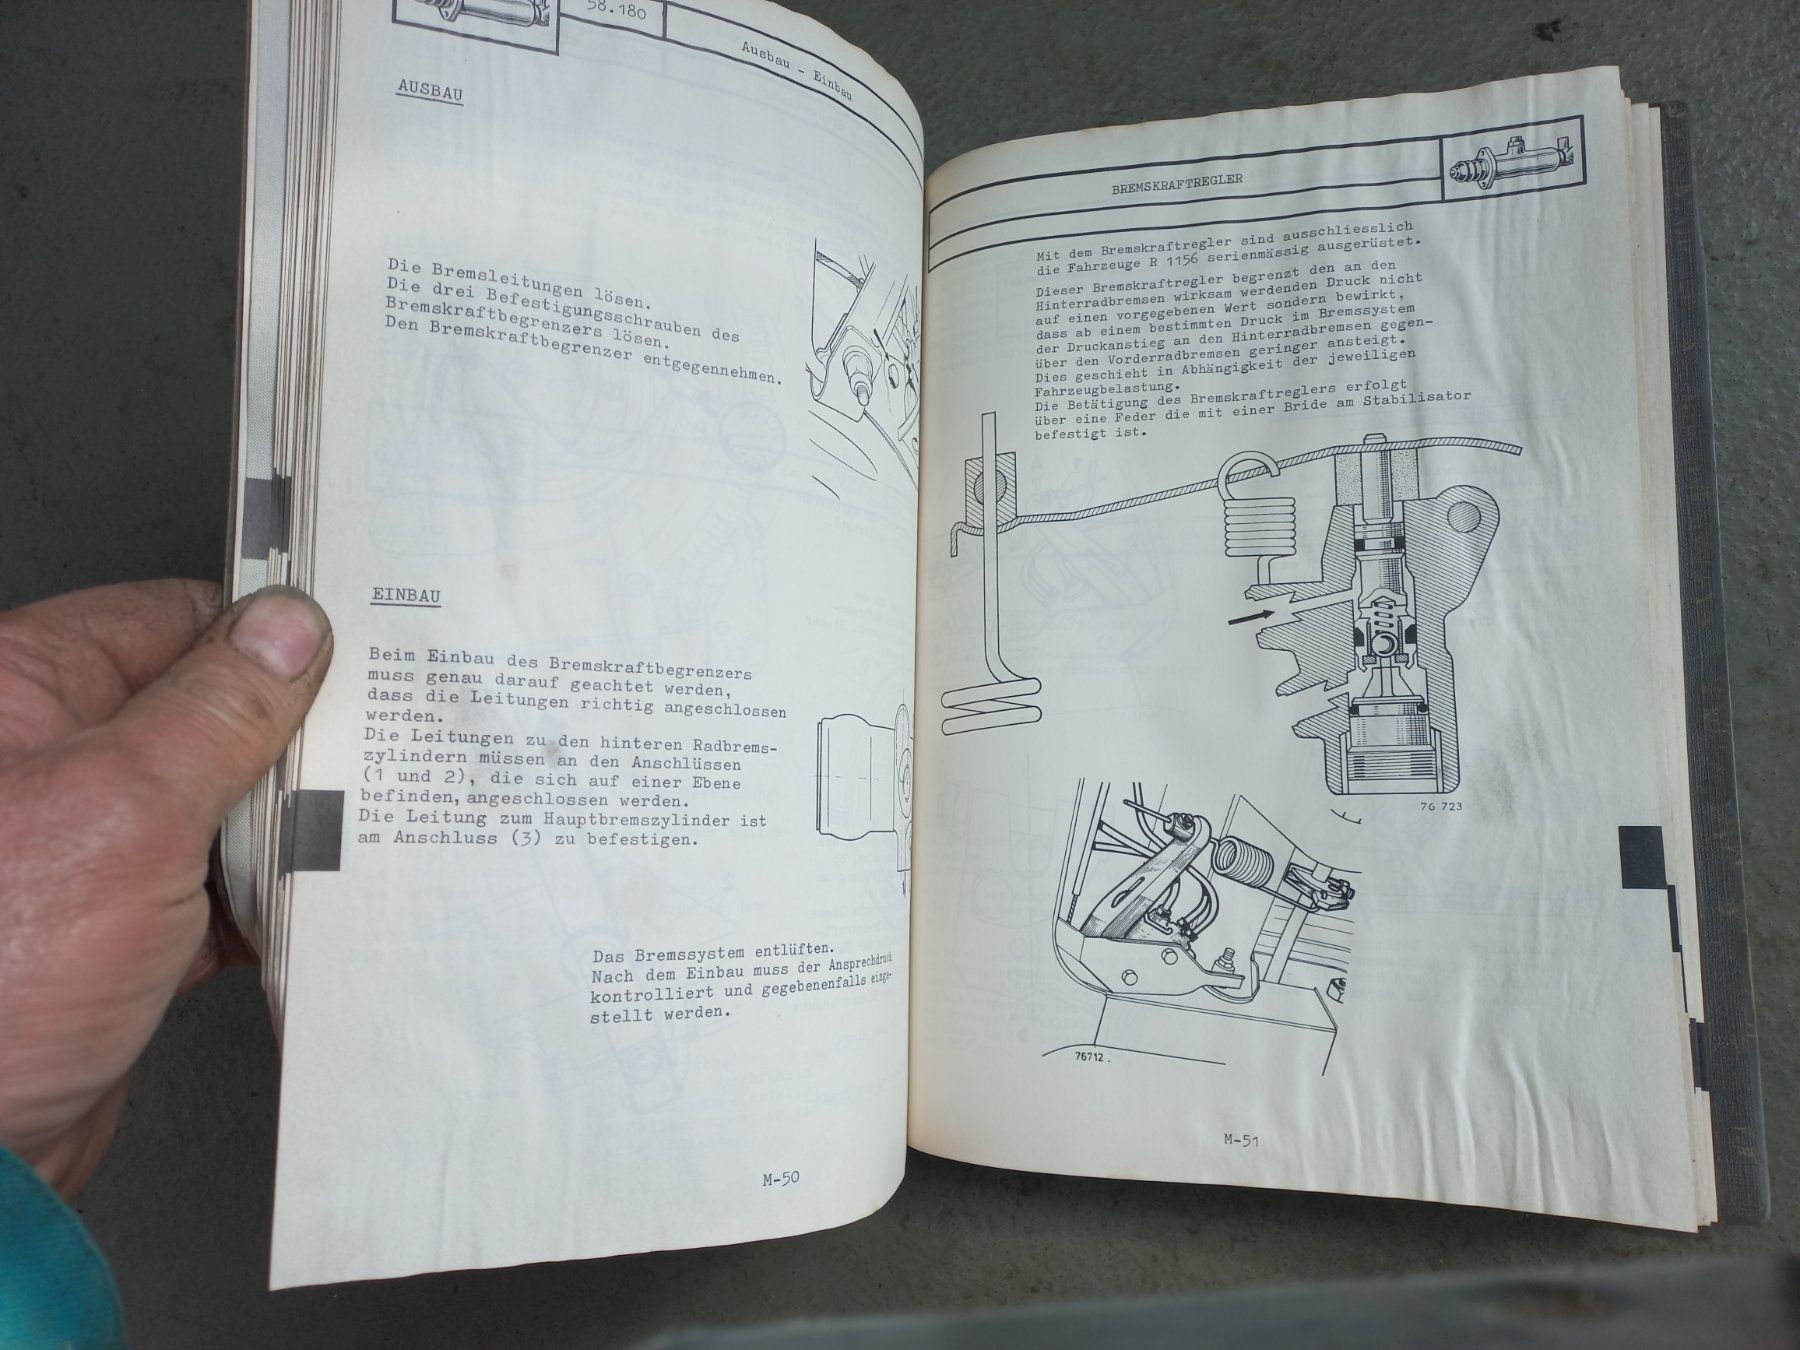 58.180
Ausbau - Einbau
AUSBAU
Die Bremsleitungen lösen.
Die drei Befestigungsschrauben des
Bremskraftbegrenzers lösen.
Den Bremskraftbegrenzer entgegennehmen.
EINBAU
Beim Einbau des Bremskraftbegrenzers
muss genau darauf geachtet werden,
dass die Leitungen richtig angeschlossen
werden.
Die Leitungen zu den hinteren Radbrems-
zylindern müssen an den Anschlüssen
(1 und 2), die sich auf einer Ebene
befinden, angeschlossen werden.
Die Leitung zum Hauptbremszylinder ist
am Anschluss (3) zu befestigen.
Das Bremssystem entlüften.
Nach dem Einbau muss der Ansprechdruck
kontrolliert und gegebenenfalls einge-
stellt werden.
M-50
BREMSKRAFTREGLER
Mit dem Bremskraftregler sind ausschliesslich
die Fahrzeuge R 1156 serienmässig ausgerüstet.
Dieser Bremskraftregler begrenzt den an den
Hinterradbremsen wirksam werdenden Druck nicht
auf einen vorgegebenen Wert sondern bewirkt,
dass ab einem bestimmten Druck im Bremssystem
der Druckanstieg an den Hinterradbremsen gegen-
über den Vorderradbremsen geringer ansteigt.
Dies geschieht in Abhängigkeit der jeweiligen
Fahrzeugbelastung.
Die Betätigung des Bremskraftreglers erfolgt
über eine Feder die mit einer Bride am Stabilisator
befestigt ist.
76 723
76712.
M-51